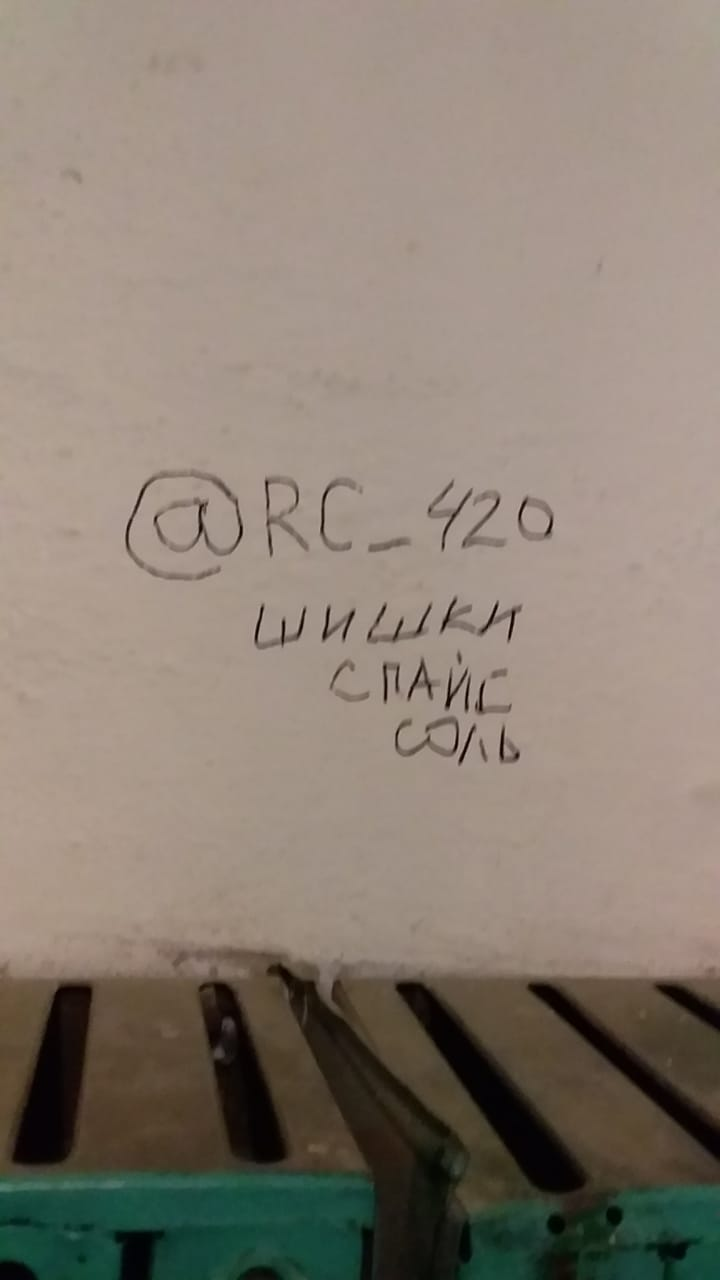 @RC_420
ШИШКИ
СПАЙС
СОЛЬ